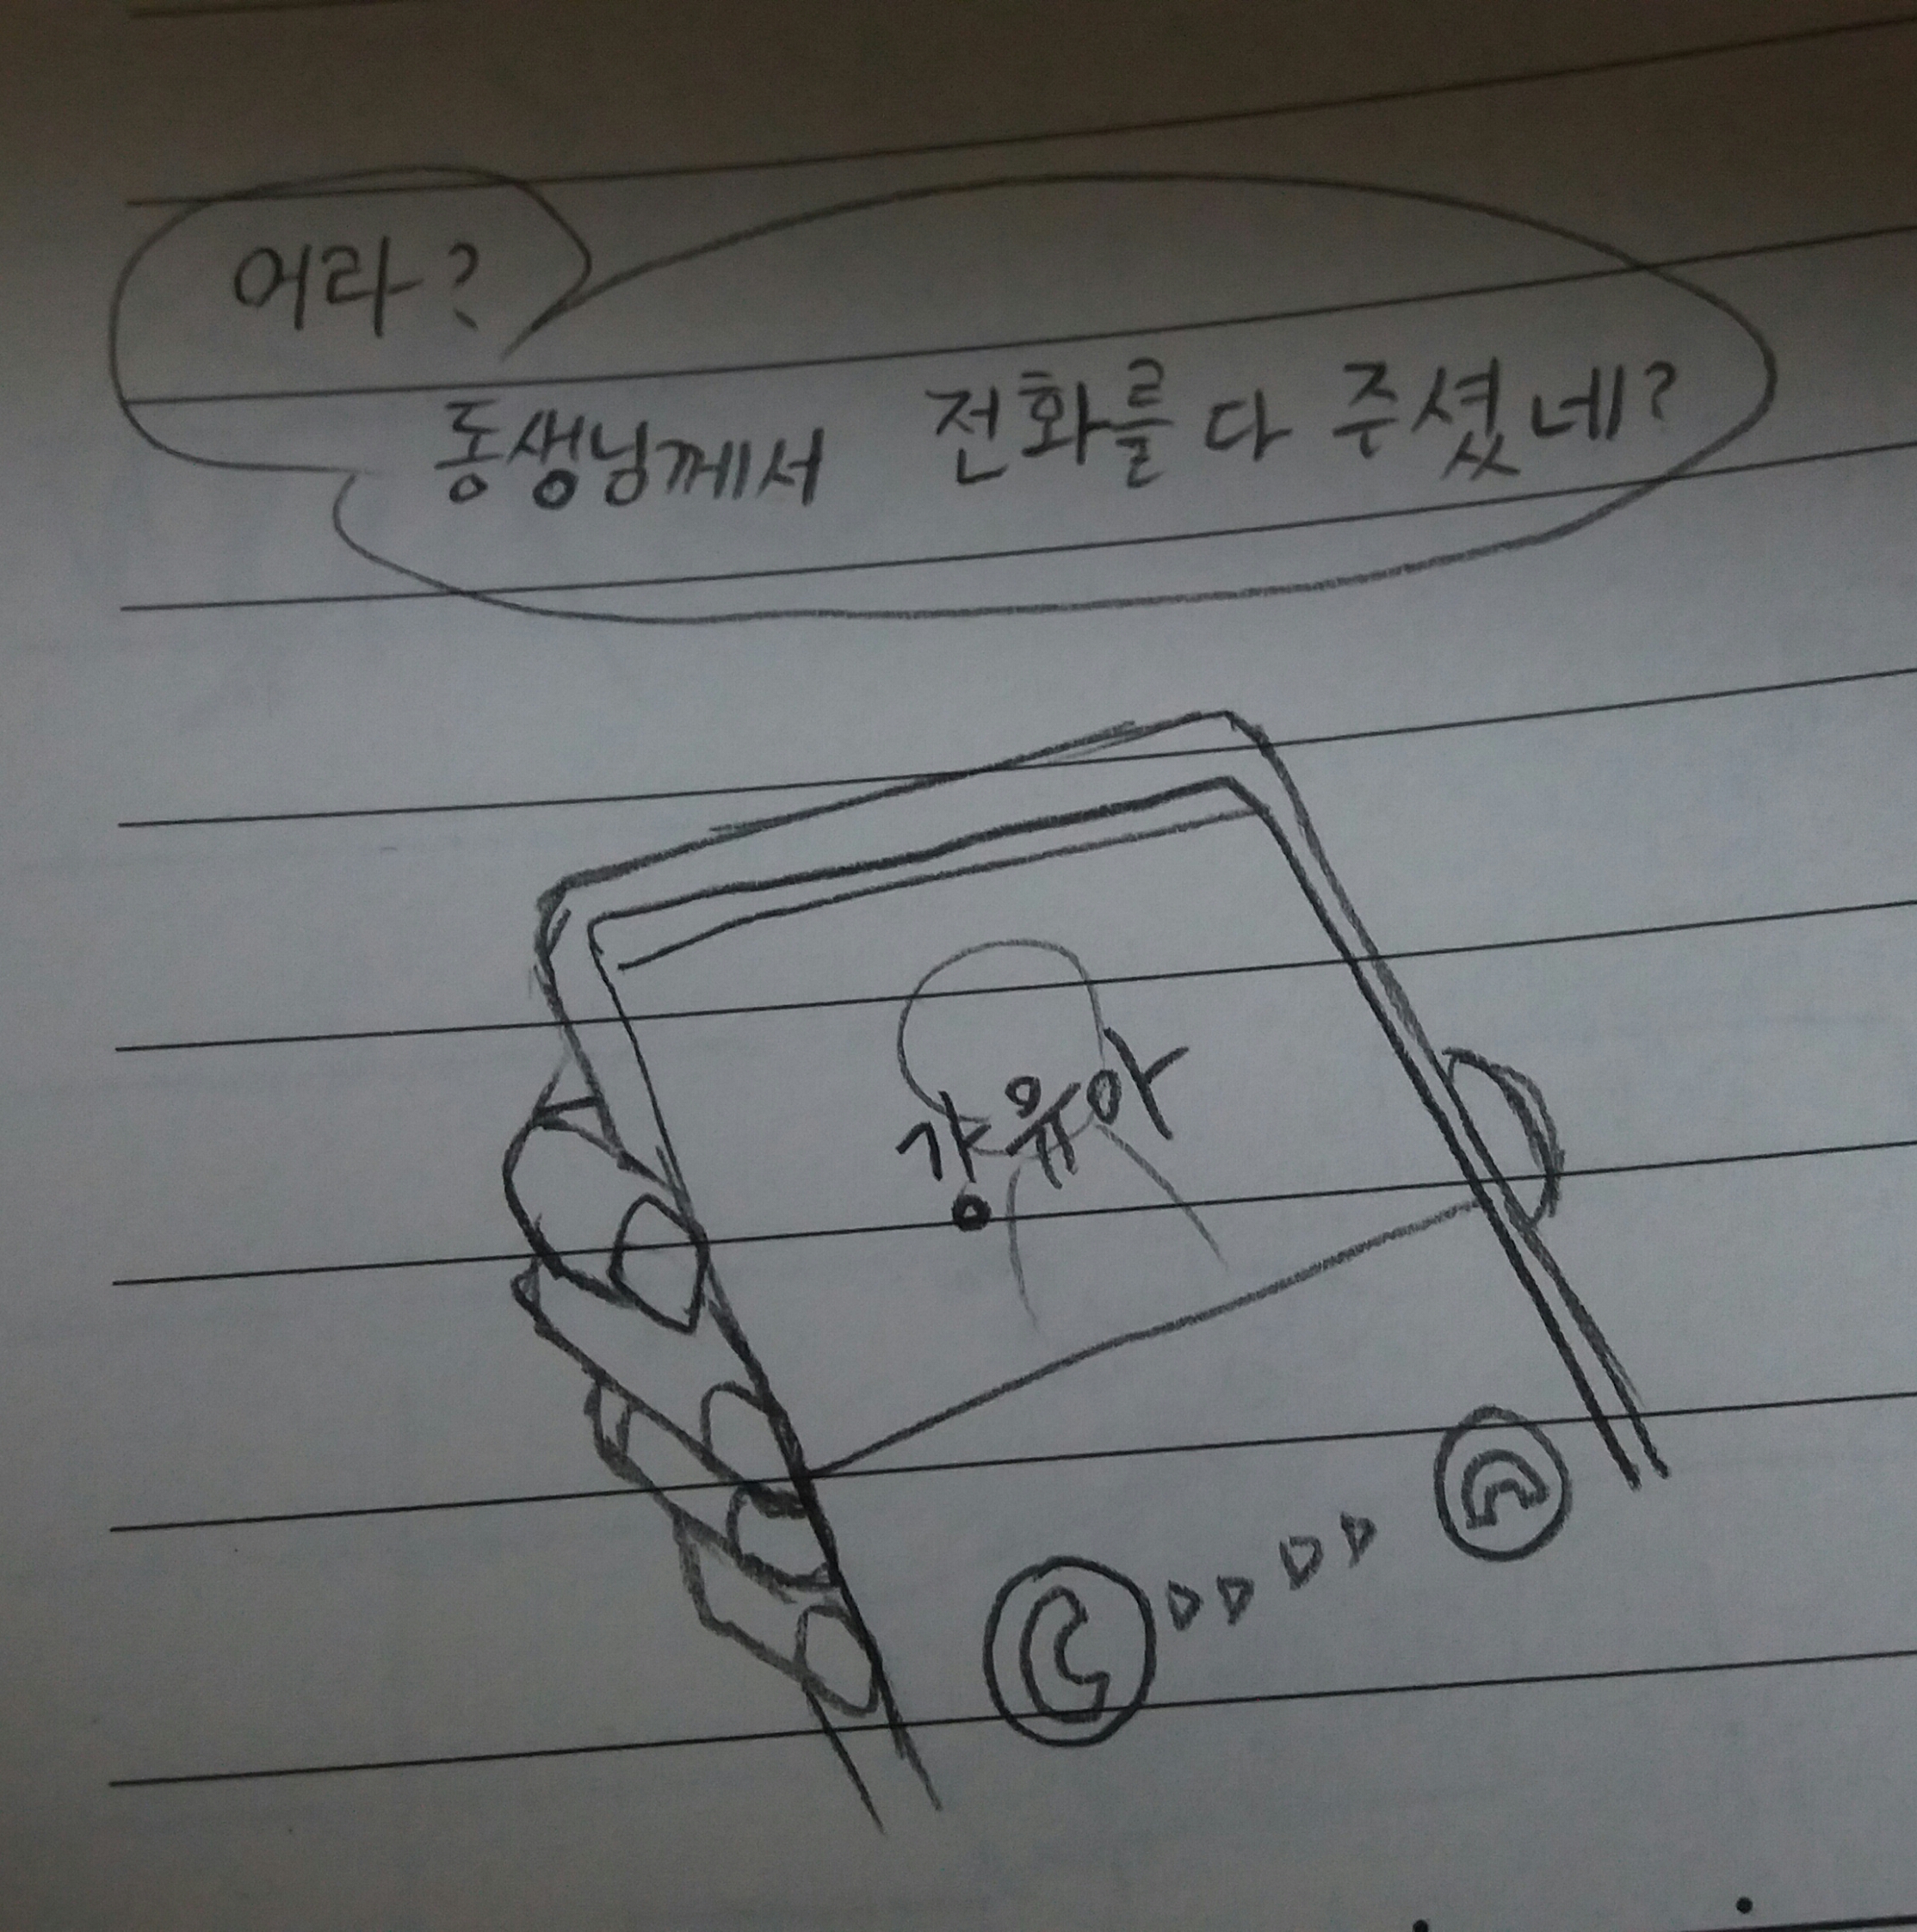 어라?
동생님께서 전화를 다 주셨네?
강유아